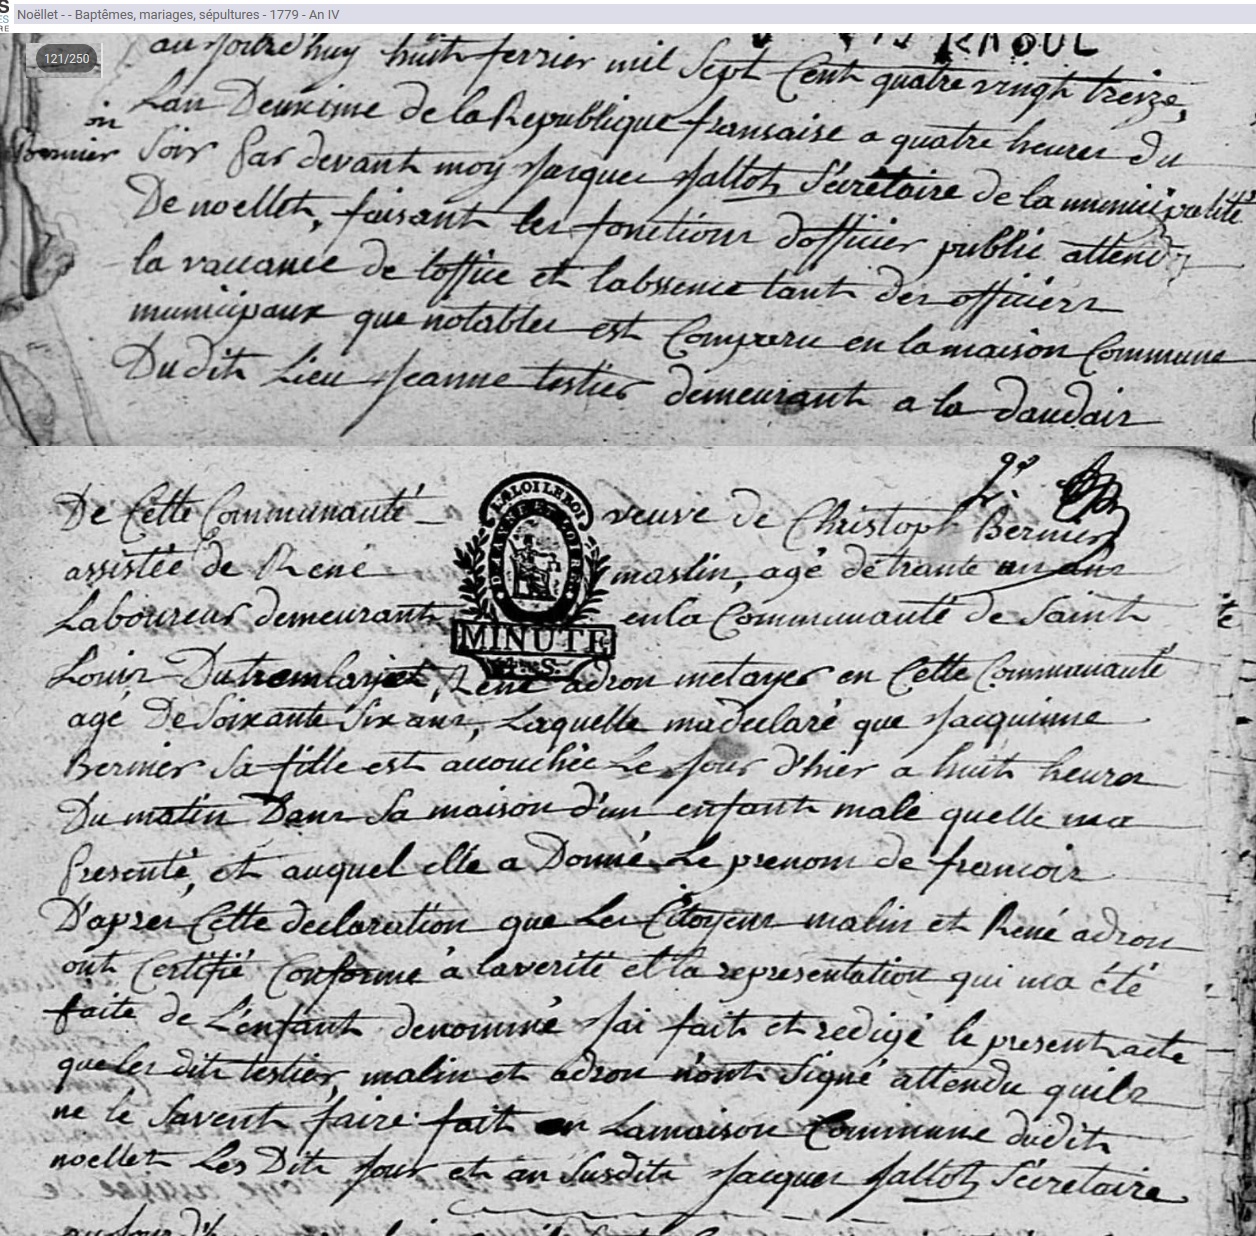 Noëllet - - Baptêmes, mariages, sépultures - 1779 - An IV
121/250
RAOUL
aujourd'huy huit fevrier mil Sept Cent quatre vingt treize,
Lan Deuxieme de la Republique fransaise a quatre heures du
Soir par devant moy Jacques Jallot Sécrétaire de la municipalité
De noellet, faisant les fonctions d'officier public attendu
la vacance de loffice et labssence tant des officiers
municipaux que notables est Comparu en la maison Commune
Dudit Lieu Jeanne testier demeurant a la daudais
De Cette Communauté veuve de Christoph Bernier
LA LOI LE ROI
MINUTE
assistée de René maslin, agé de trante un ans
Laboureur demeurant en la Communauté de Saint
Louis Dutremblay et René adron metayer en Cette Communauté
agé De Soixante Six ans, Laquelle ma declaré que Jacquinne
Bernier Sa fille est accouchée Le jour d'hier a huit heures
Du matin Dans Sa maison d'un enfant male quelle ma
Presenté, et auquel elle a Donné Le prenom de francois
D'apres Cette declaration que Les Citoyens malin et René adron
ont Certifié Conforme à la verité et la representation qui ma été
faite de L'enfant denommé Jai fait et redigé le present acte
que les dits testier, malin et adron n'ont Signé attendu quils
ne le Savent faire: fait en La maison Commune dudit
noellet Les Dits jour et an Susdits Jacques Jallot Sécretaire